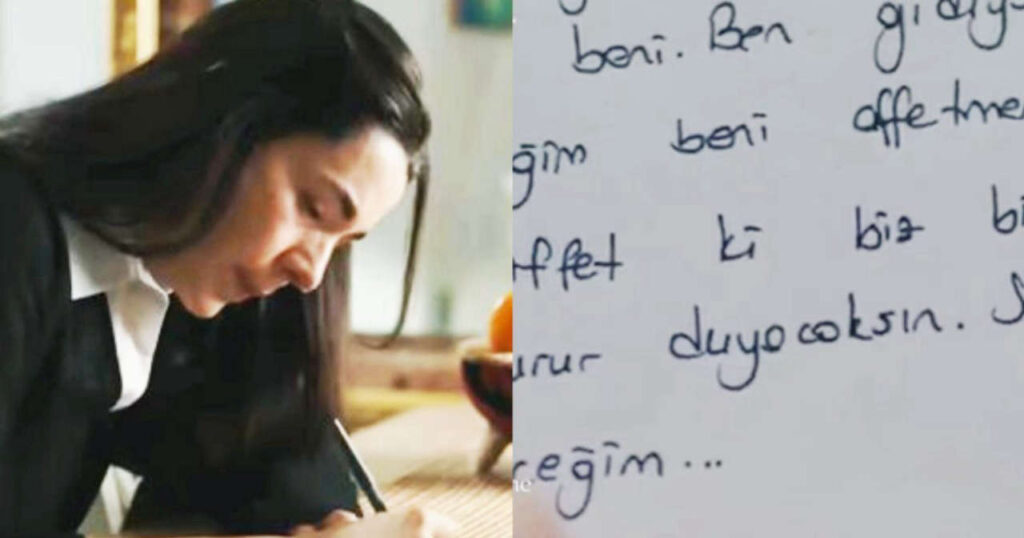 beni. Ben gidiyo
ğim beni affetme
ffet ki biz bi
urur duyacaksın. S
reğim...
ne